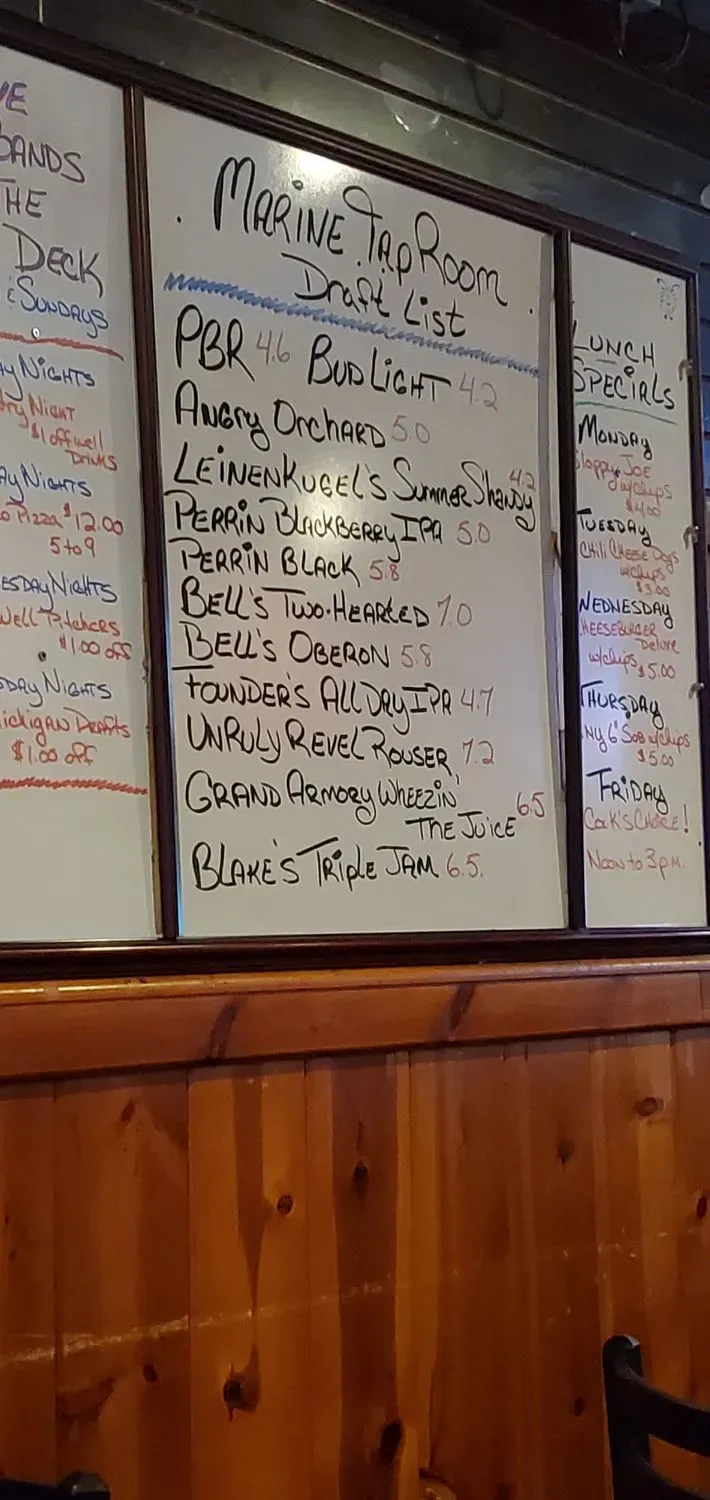 BANDS
THE
DECK
& SUNDAYS
NIGHTS
NIGHT
$1 off well
DRINKS
NIGHTS
PIZZA $12.00
5 to 9
NIGHTS
Well Pitchers
$1.00 off
NIGHTS
Drafts
$1.00 off
MARINE TAP ROOM
Draft List
PBR 4.6 BUD LIGHT 4.2
ANGRY ORCHARD 5.0
LEINENKUGEL'S SUMMER SHANDY 4.2
PERRIN BLACKBERRY IPA 5.0
PERRIN BLACK 5.8
BELL'S TWO-HEARTED 7.0
BELL'S OBERON 5.8
FOUNDER'S ALL DAY IPA 4.7
UNRULY REVEL ROUSER 7.2
GRAND ARMORY WHEEZIN'
THE JUICE 6.5
BLAKE'S TRIPLE JAM 6.5
LUNCH
SPECIALS
MONDAY
Sloppy Joe
w/chips
$4.00
TUESDAY
CHILI CHEESE Dogs
w/chips
$3.00
WEDNESDAY
CHEESEBURGER
Deluxe
w/chips $5.00
THURSDAY
6" SUB w/chips
$5.00
FRIDAY
COOK'S CHOICE!
Noon to 3 pm.